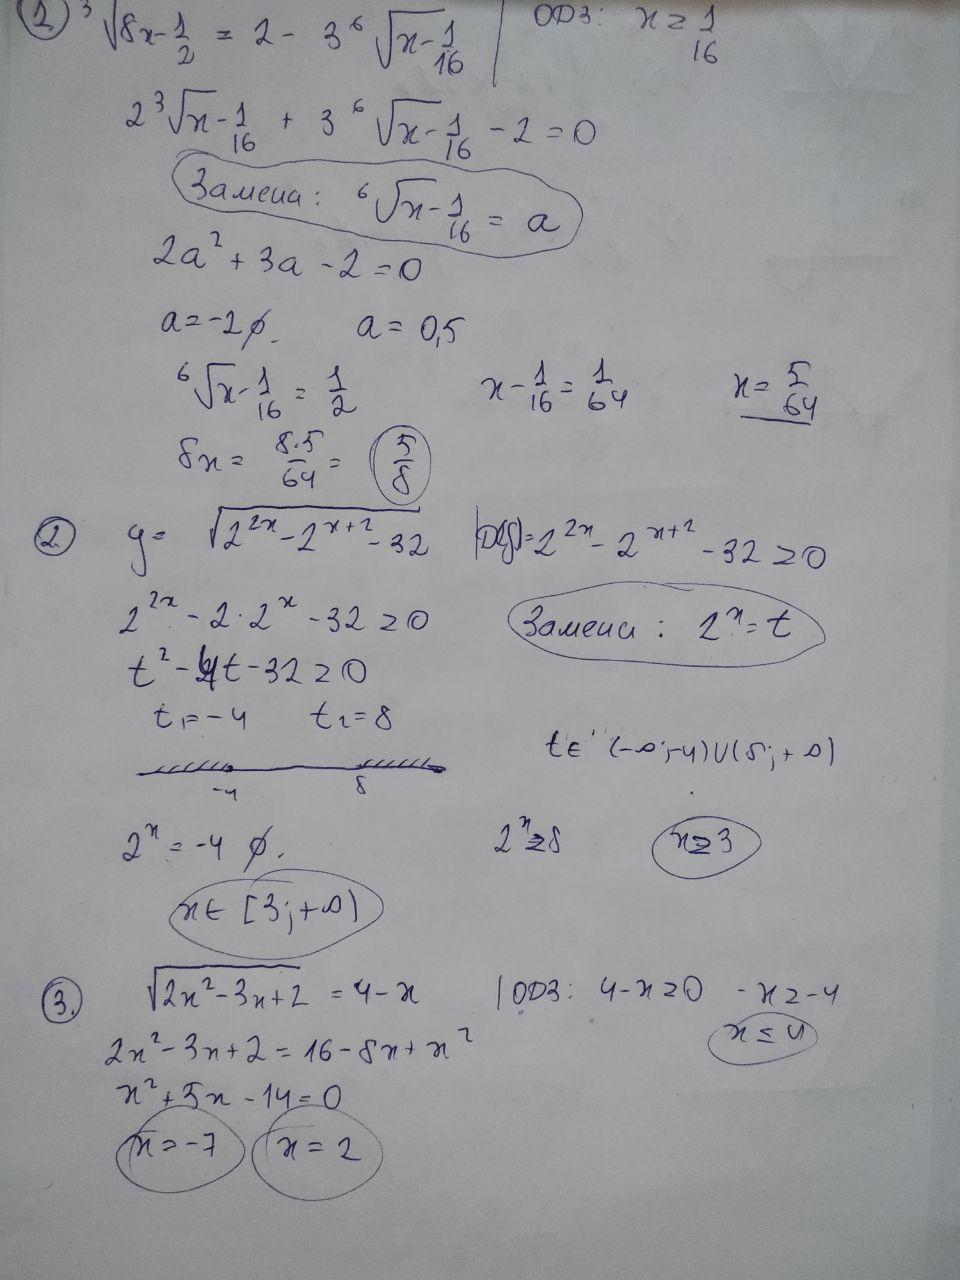 1 ³√8x - 1/2 = 2 - 3 ⁶√x - 1/16 | ОДЗ: x ≥ 1/16
2 ³√x - 1/16 + 3 ⁶√x - 1/16 - 2 = 0
Замена: ⁶√x - 1/16 = a
2a² + 3a - 2 = 0
a = -2 ∅. a = 0,5
⁶√x - 1/16 = 1/2 x - 1/16 = 1/64 x = 5/64
8x = 8·5/64 = 5/8
2. y = √2^2x - 2^x+2 - 32 | D(y) = 2^2x - 2^x+2 - 32 ≥ 0
2^2x - 2·2^x - 32 ≥ 0 Замена: 2^x = t
t² - 4t - 32 ≥ 0
t₁ = -4 t₂ = 8
t ∈ (-∞; -4) ∪ (8; +∞)
-4 8
2^x = -4 ∅. 2^x ≥ 8 x ≥ 3
x ∈ [3; +∞)
3. √2x² - 3x + 2 = 4 - x | ОДЗ: 4 - x ≥ 0 -x ≥ -4
2x² - 3x + 2 = 16 - 8x + x² x ≤ 4
x² + 5x - 14 = 0
x = -7 x = 2